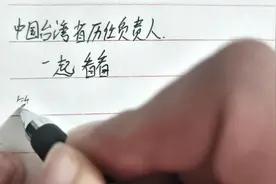 中国台湾省历任负责人.
一起看看